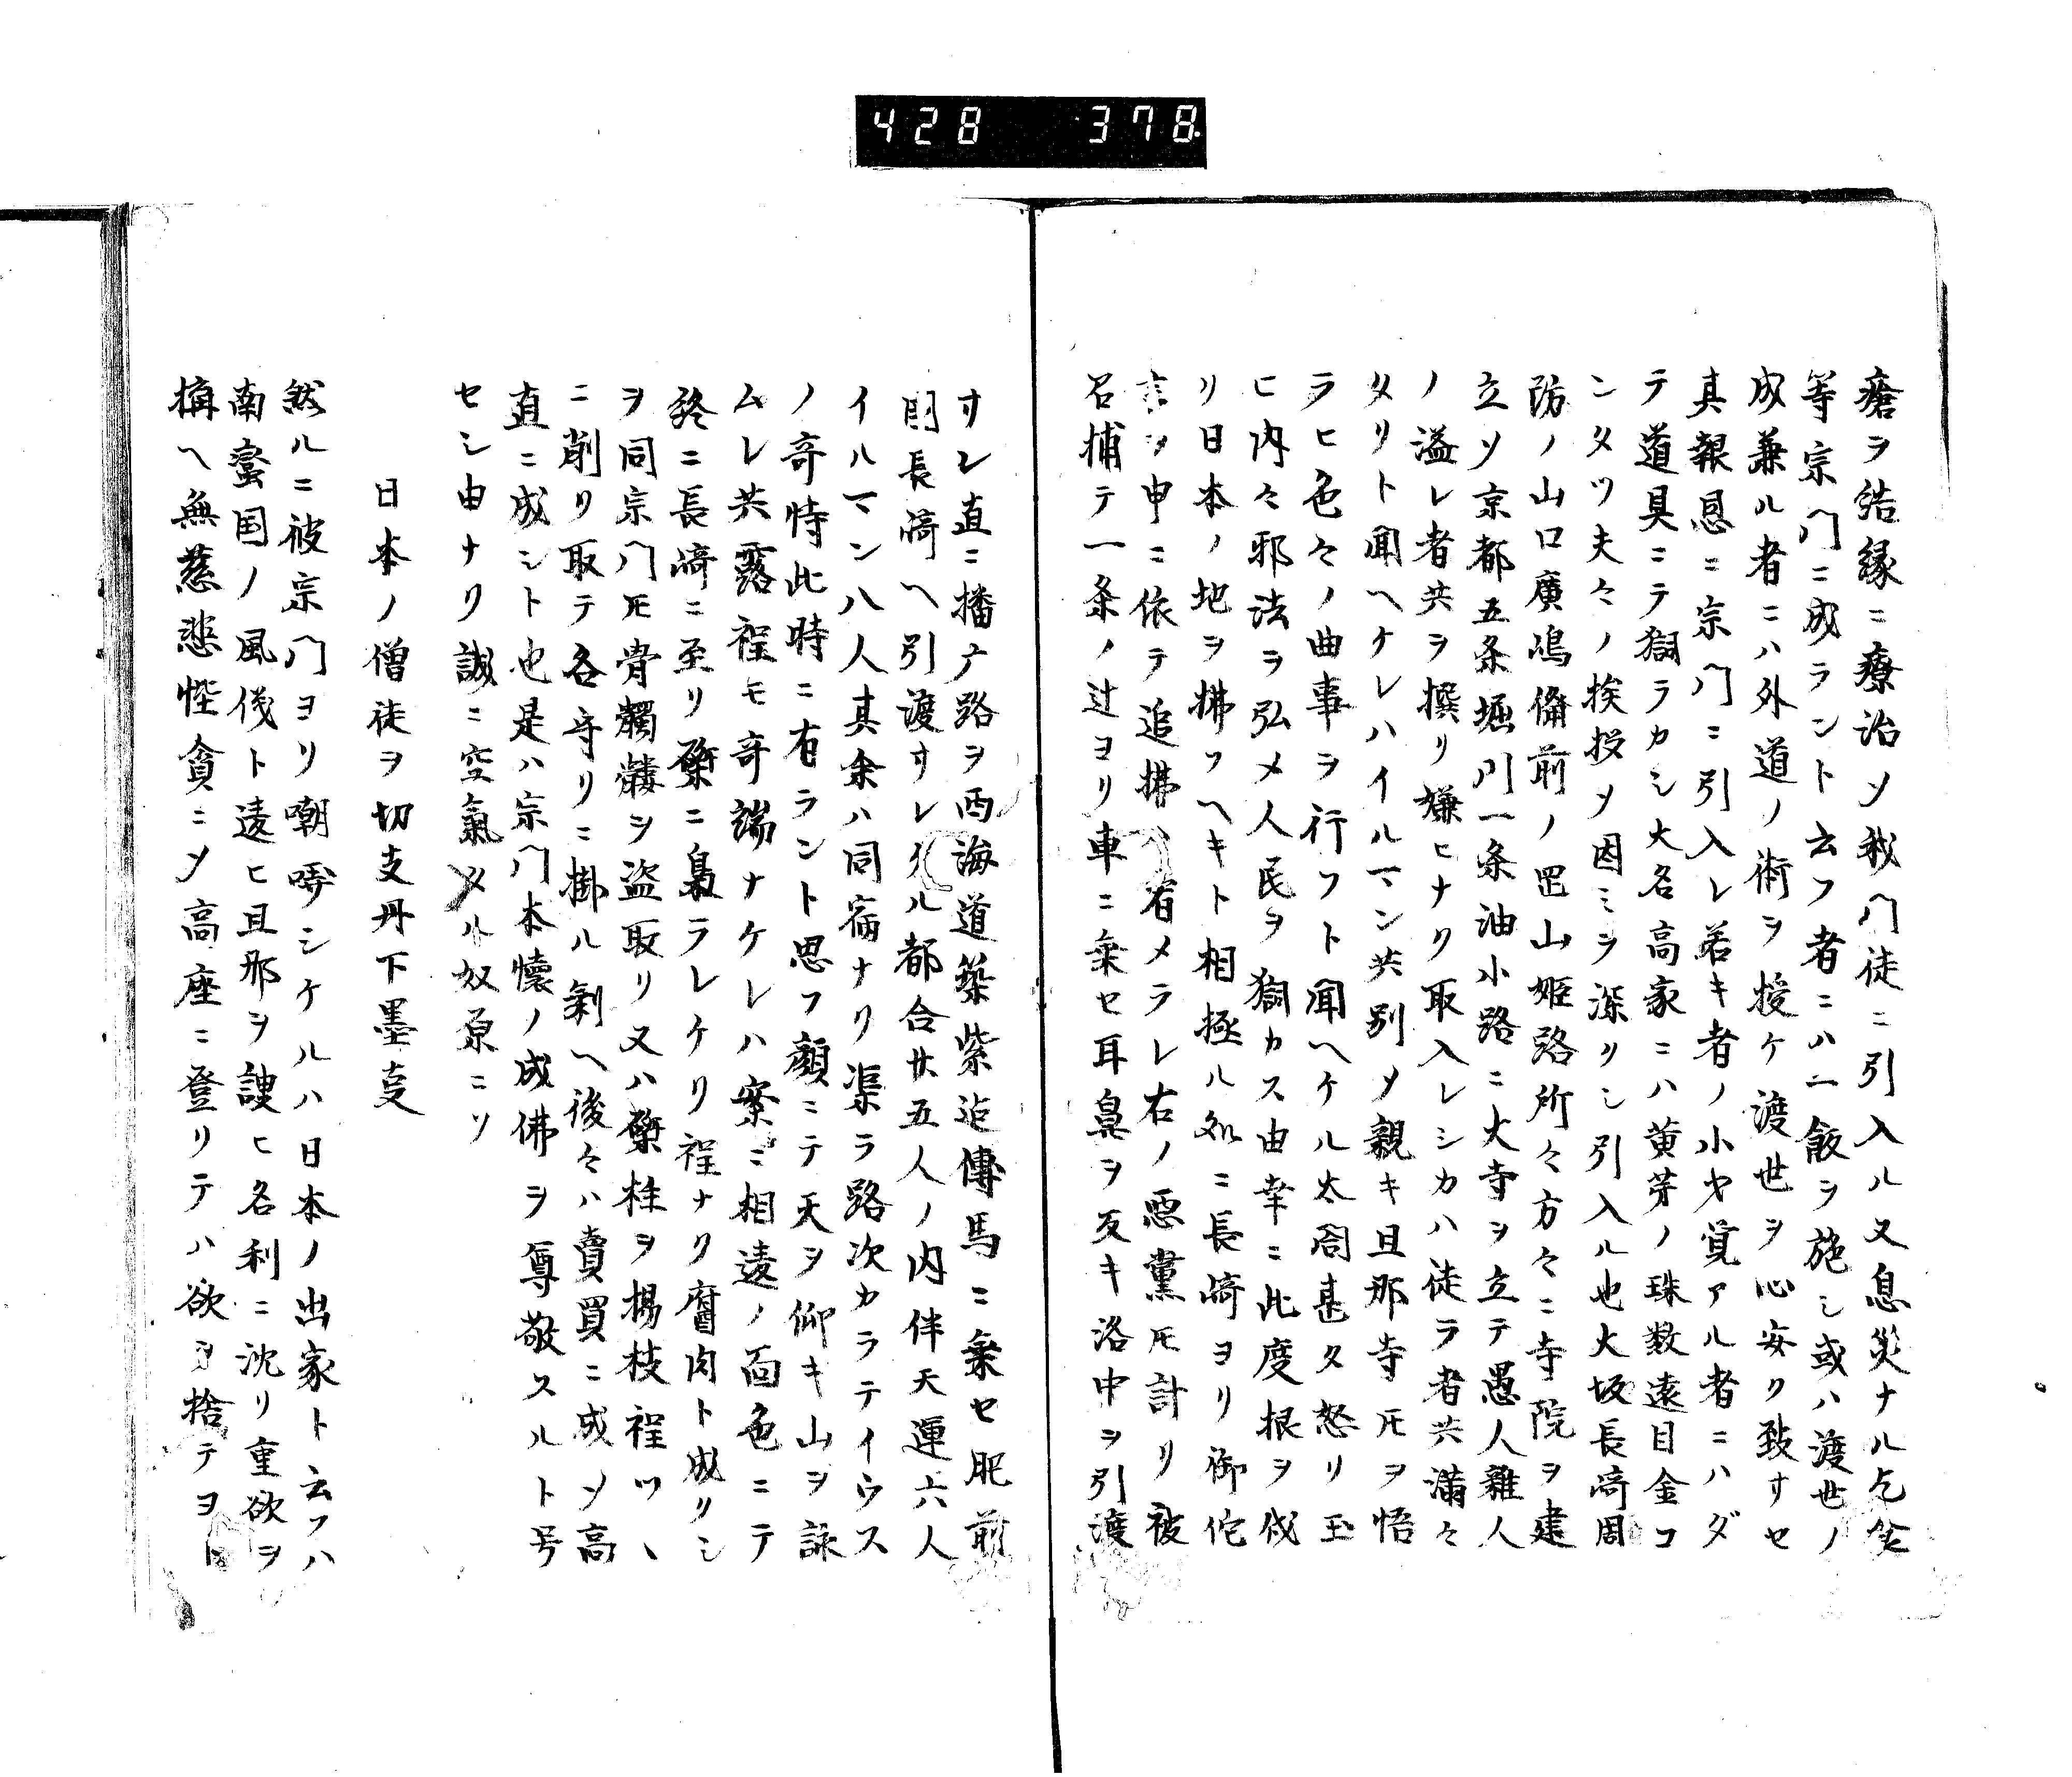 428 378
瘡ヲ結縁ニ療治ソ我門徒ニ引入ル又息災ナル乞食
等宗門ニ成ラント云フ者ニハ一飯ヲ施シ或ハ渡世ノ
成兼ル者ニハ外道ノ術ヲ授ケ渡世ヲ心安ク致サセ
其報恩ニ宗門ニ引入レ若キ者ノ小才覚アル者ニハダ
テ道具ニテ獨ラカシ大名高家ニハ黄芽ノ珠数遠目金コ
ンタツ夫々ノ挨拶ソ因ミヲ深クシ引入ル也大坂長崎周
防ノ山口廣嶋備前ノ罡山姫路所々方々ニ寺院ヲ建
立ソ京都五条堀川一条油小路ニ大寺ヲ立テ愚人雜人
ノ溢レ者共ヲ撰リ嫌ヒナク取入レシカハ徒ラ者共滿々
タリト聞ヘケレハイルマン共別ソ親キ旦那寺𪜈ヲ悟
ラヒ色々ノ曲事ヲ行フト聞ヘケル太閤甚タ怒リ玉
ヒ内々邪法ヲ弘メ人民ヲ獨カス由幸ニ此度根ヲ伐
リ日本ノ地ヲ拂フヘキト相極ル処ニ長崎ヨリ御佗
言ヲ申ニ依テ追拂ニ宥メラレ右ノ悪黨𪜈計リ被
召捕テ一条ノ辻ヨリ車ニ乗セ耳鼻ヲ反キ洛中ヲ引渡
サレ直ニ播广路ヲ西海道築紫迠傳馬ニ乗セ肥前
国長崎ヘ引渡サレケル都合廿五人ノ内伴天連六人
イルマン八人其余ハ同宿ナリ渠ラ路次カラテイウス
ノ奇特此時ニ有ラント思フ顔ニテ天ヲ仰キ山ヲ詠
ムレ共露程モ奇端ナケレハ案ニ相違ノ面色ニテ
終ニ長崎ニ至リ磔ニ梟ラレケリ程ナク腐肉ト成リシ
ヲ同宗門𪜈骨髑髏ヲ盗取リ又ハ磔柱ヲ揚枝程ツヽ
ニ削リ取テ各守リニ掛ル剰ヘ後々ハ賣買ニ成ソ高
直ニ成シト也是ハ宗門本懐ノ成佛ヲ尊敬スルト号
セシ由ナリ誠ニ空氣タル奴原ニソ
日本ノ僧徒ヲ切支丹下墨𠮟
然ルニ彼宗門ヨリ嘲哢シケルハ日本ノ出家ト云フハ
南蛮国ノ風儀ト違ヒ旦那ヲ諛ヒ名利ニ沈リ重欲ヲ
構ヘ無慈悲慳貪ニソ高座ニ登リテハ欲ヲ捨テヨト